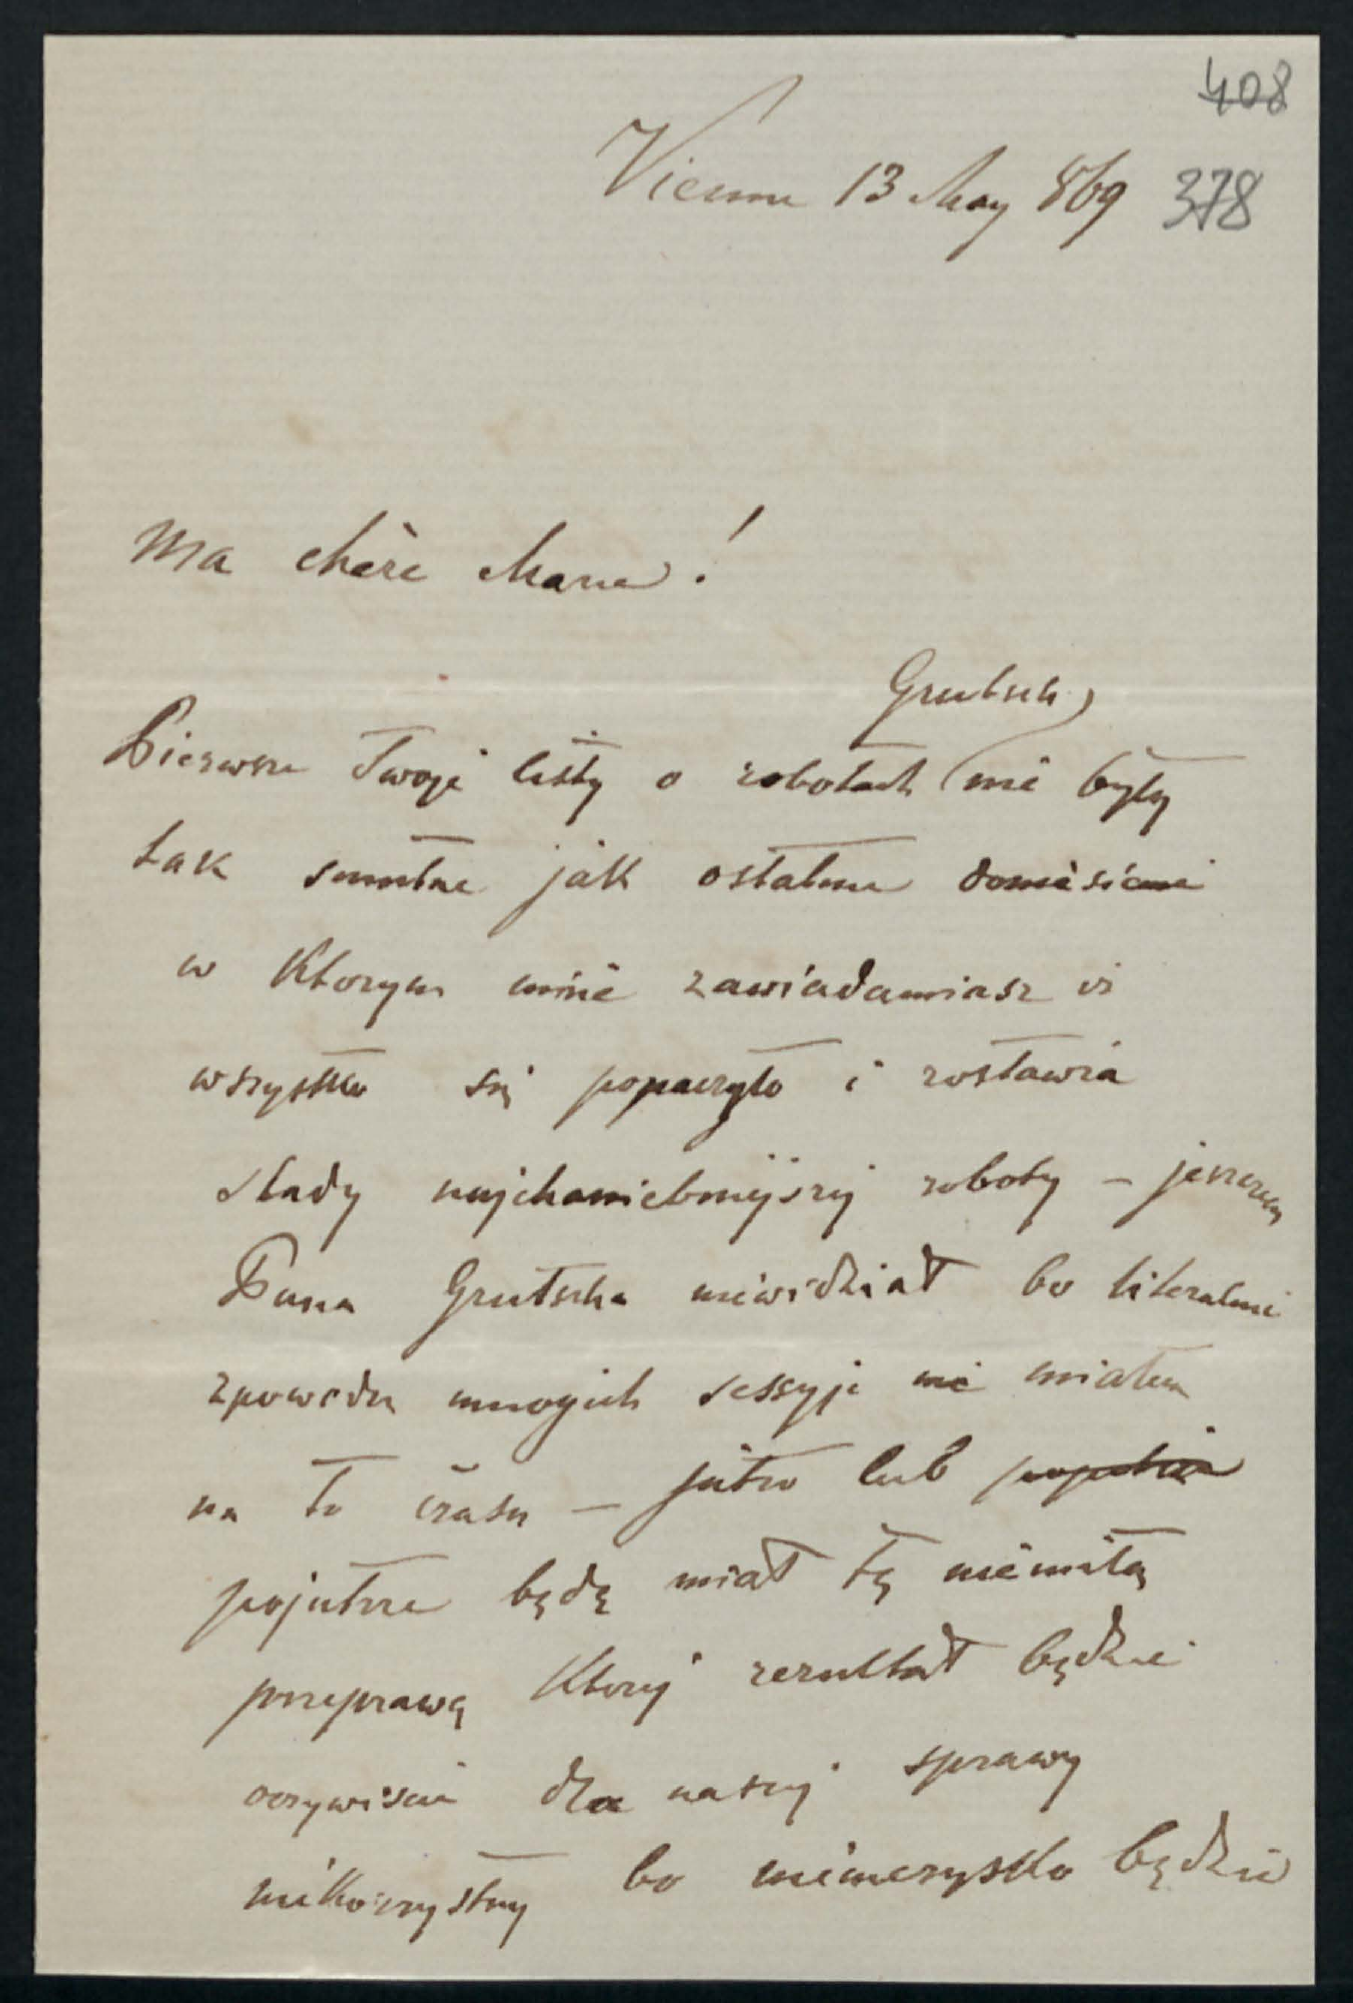 408
Vienne 13 May 869 378
Ma chère Marie!
Grutsch
Pierwsze Twoje listy o robotach nie były
tak smutne jak ostatnie doniesienie
w ktorym mnie zawiadamiasz iż
wszystko się popaczyło i zostawia
slady najchaniebniejszej roboty – jeszczem
Pana Grutscha niewidział bo literalnie
zpowodu mnogich sessyji nie miałem
na to czasu – jutro lub
pojutrze będę miał tę niemiłą
przeprawę ktorej rezultat będzie
oczywiscie dla naszej sprawy
niekorzystny bo niemczysko będzie